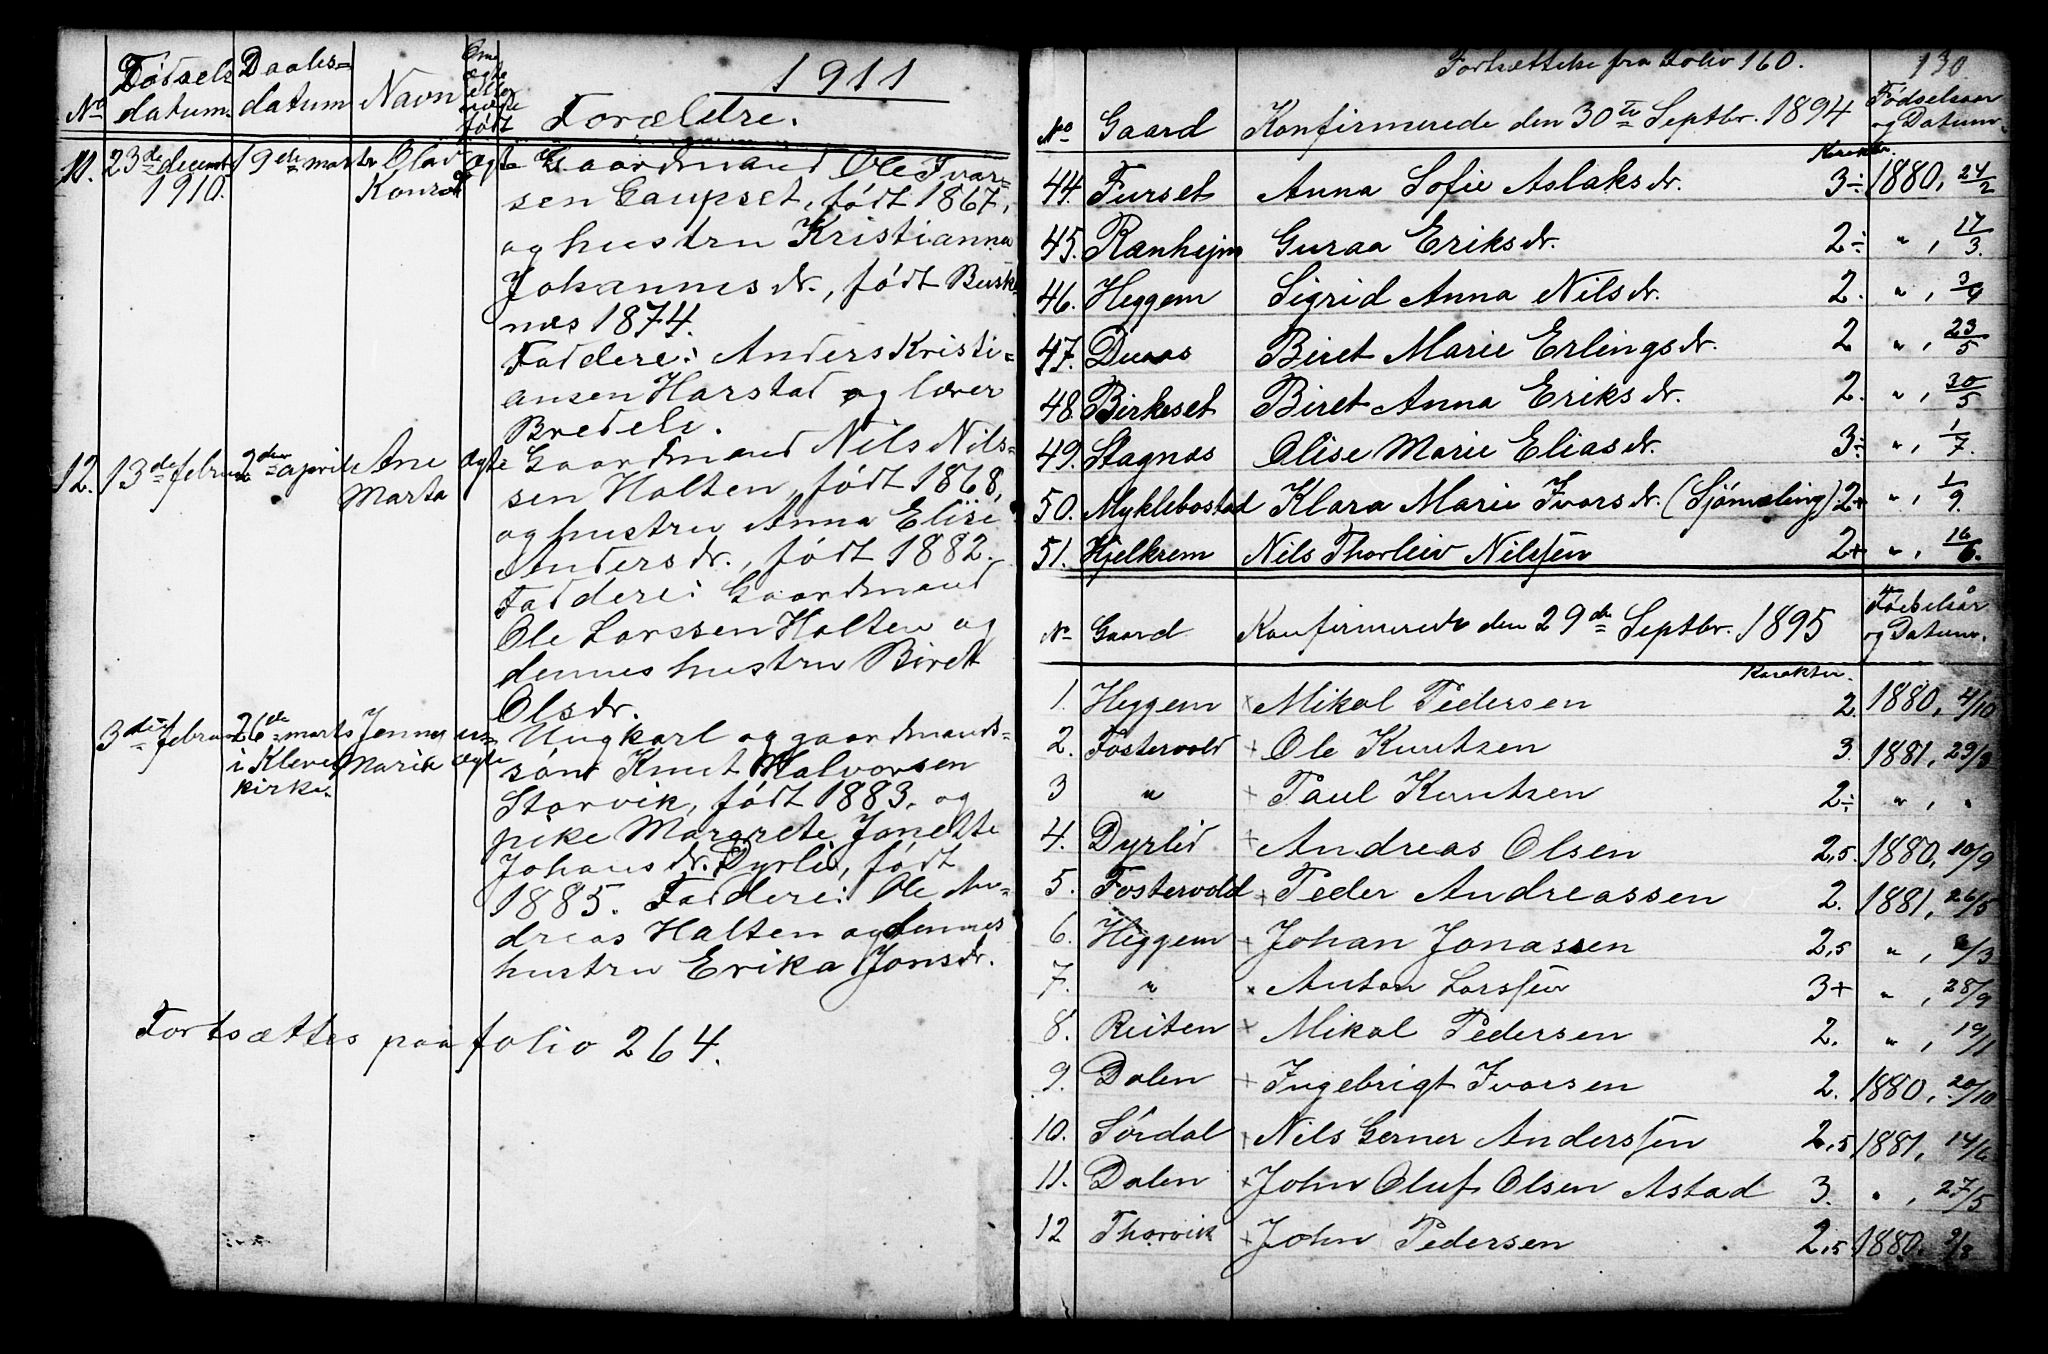 1911
No Fødsels datum. Daabs= datum Navn Om ægte eller uægte født Forældre.
11. 23de decembr 19de marts Olav Ægte Gaardmand Ole Ivar=
1910. Konrad sen Gaupset, født 1867,
og hustru Kristianna
Johannesdr., født Busk=
næs 1874.
Faddere: Anders Kristi=
ansen Harstad og lærer
Bredeli.
12. 13de februar 2den april Ane Ægte Gaardmand Nils Nils=
Marta sen Holten, født 1868,
og hustru Anna Elise
Andersdr., født 1882.
Faddere: Gaardmand
Ole Larssen Holten og
dennes hustru Biret
Olsdr.
3die februar 26de marts Jenny u= Ungkarl og gaardmands=
i Kleve Marie ægte søn Knut Halvorsen
kirke. Storvik, født 1883. og
pike Margrete Jonette
Johansdr. Dyrli, født
1885. Faddere: Ole An=
dreas Halten og dennes
hustru Erika Jonsdr.
Fortsættes paa folio 264.
Fortsættelse fra Folio 160. 130.
No Gaard Konfirmerede den 30te Septbr. 1894 Fødselsaar og Datum.
Karakter.
44. Furset Anna Sofie Aslaksdr. 3÷ 1880, 24/2
45. Ranhejm Guraa Eriksdr. 2÷ " , 17/3.
46. Heggem Sigrid Anna Nilsdr. 2. " , 3/4
47. Duaas Biret Marie Erlingsdr. 2 " , 23/5
48. Birkeset Biret Anna Eriksdr. 2. " , 30/5
49. Stagnæs Olise Marie Eliasdr. 3÷ " , 1/7.
50. Myklebostad Klara Marie Ivarsdr. (Sjömæling) 2+ " , 1/9.
51. Hjelkrem Nils Thorleiv Nilssen 2+ " , 16/6.
No Gaard Konfirmerede den 29de Septbr. 1895 Fødselsår og Datum.
Karakter.
1. Heggem × Mikal Pedersen 2. 1880, 4/10
2. Fostervold × Ole Knutsen 3. 1881, 29/3
3 " × Paul Knutsen 2÷ " , "
4. Dyrlid × Andreas Olsen 2,5. 1880, 10/9
5. Fostervold × Peder Andreassen 2. 1881, 26/5
6. Heggem × Johan Jonassen 2,5 " , /3
7. " × Anton Larssen 3+ " , 28/9
8. Reiten × Mikal Pedersen 2. " , 19/11
9. Dalen × Ingebrigt Ivarsen 2. 1880, 20/10
10. Sørdal × Nils Gerner Anderssen 2,5 1881, 14/6
11. Dalen × John Oluf Olsen Astad 3. " , 27/5
12 Thorvik × John Pedersen 2,5 1880, 9/8